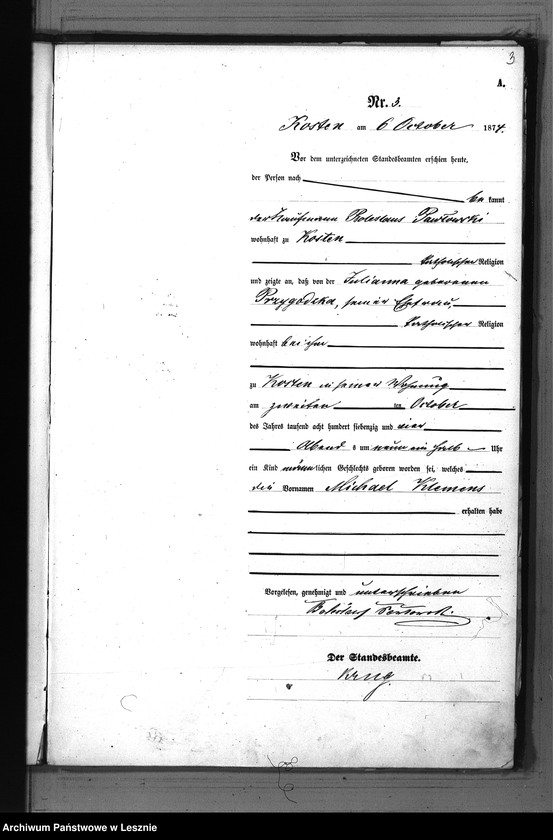 3
A.
Nr. 3.
Kosten am 6 October 1874.
Vor dem unterzeichneten Standesbeamten erschien heute,
der Person nach
be kannt
der Kaufmann Boleslaus Pawłowski
wohnhaft zu Kosten
katholischer Religion
und zeigte an, daß von der Julianna geborenen
Przygodzka, seiner Ehefrau,
katholischer Religion
wohnhaft bei ihm
zu Kosten in seiner Wohnung
am zweiten ten October
des Jahres tausend acht hundert siebenzig und vier
Abend s um neun ein halb Uhr
ein Kind männlichen Geschlechts geboren worden sei, welches
die Vornamen Michael Klemens
erhalten habe
Vorgelesen, genehmigt und unterschrieben
Der Standesbeamte.
Krug
Archiwum Państwowe w Lesznie